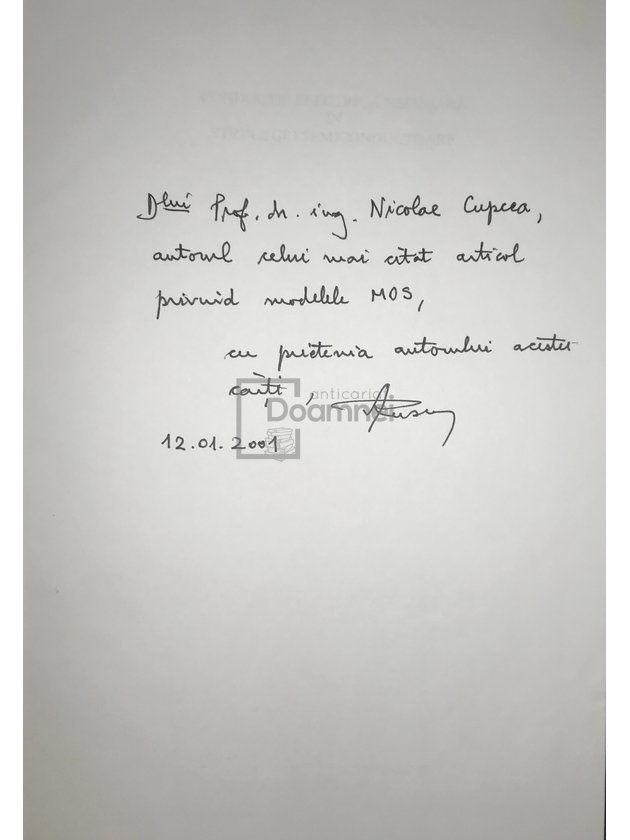 Dlui Prof. dr. ing. Nicolae Cupcea,
autorul celui mai citat articol
privind modelele MOS,
cu prietenia autorului acestei
cărți,
anticariat
Doamnei
12.01.2001